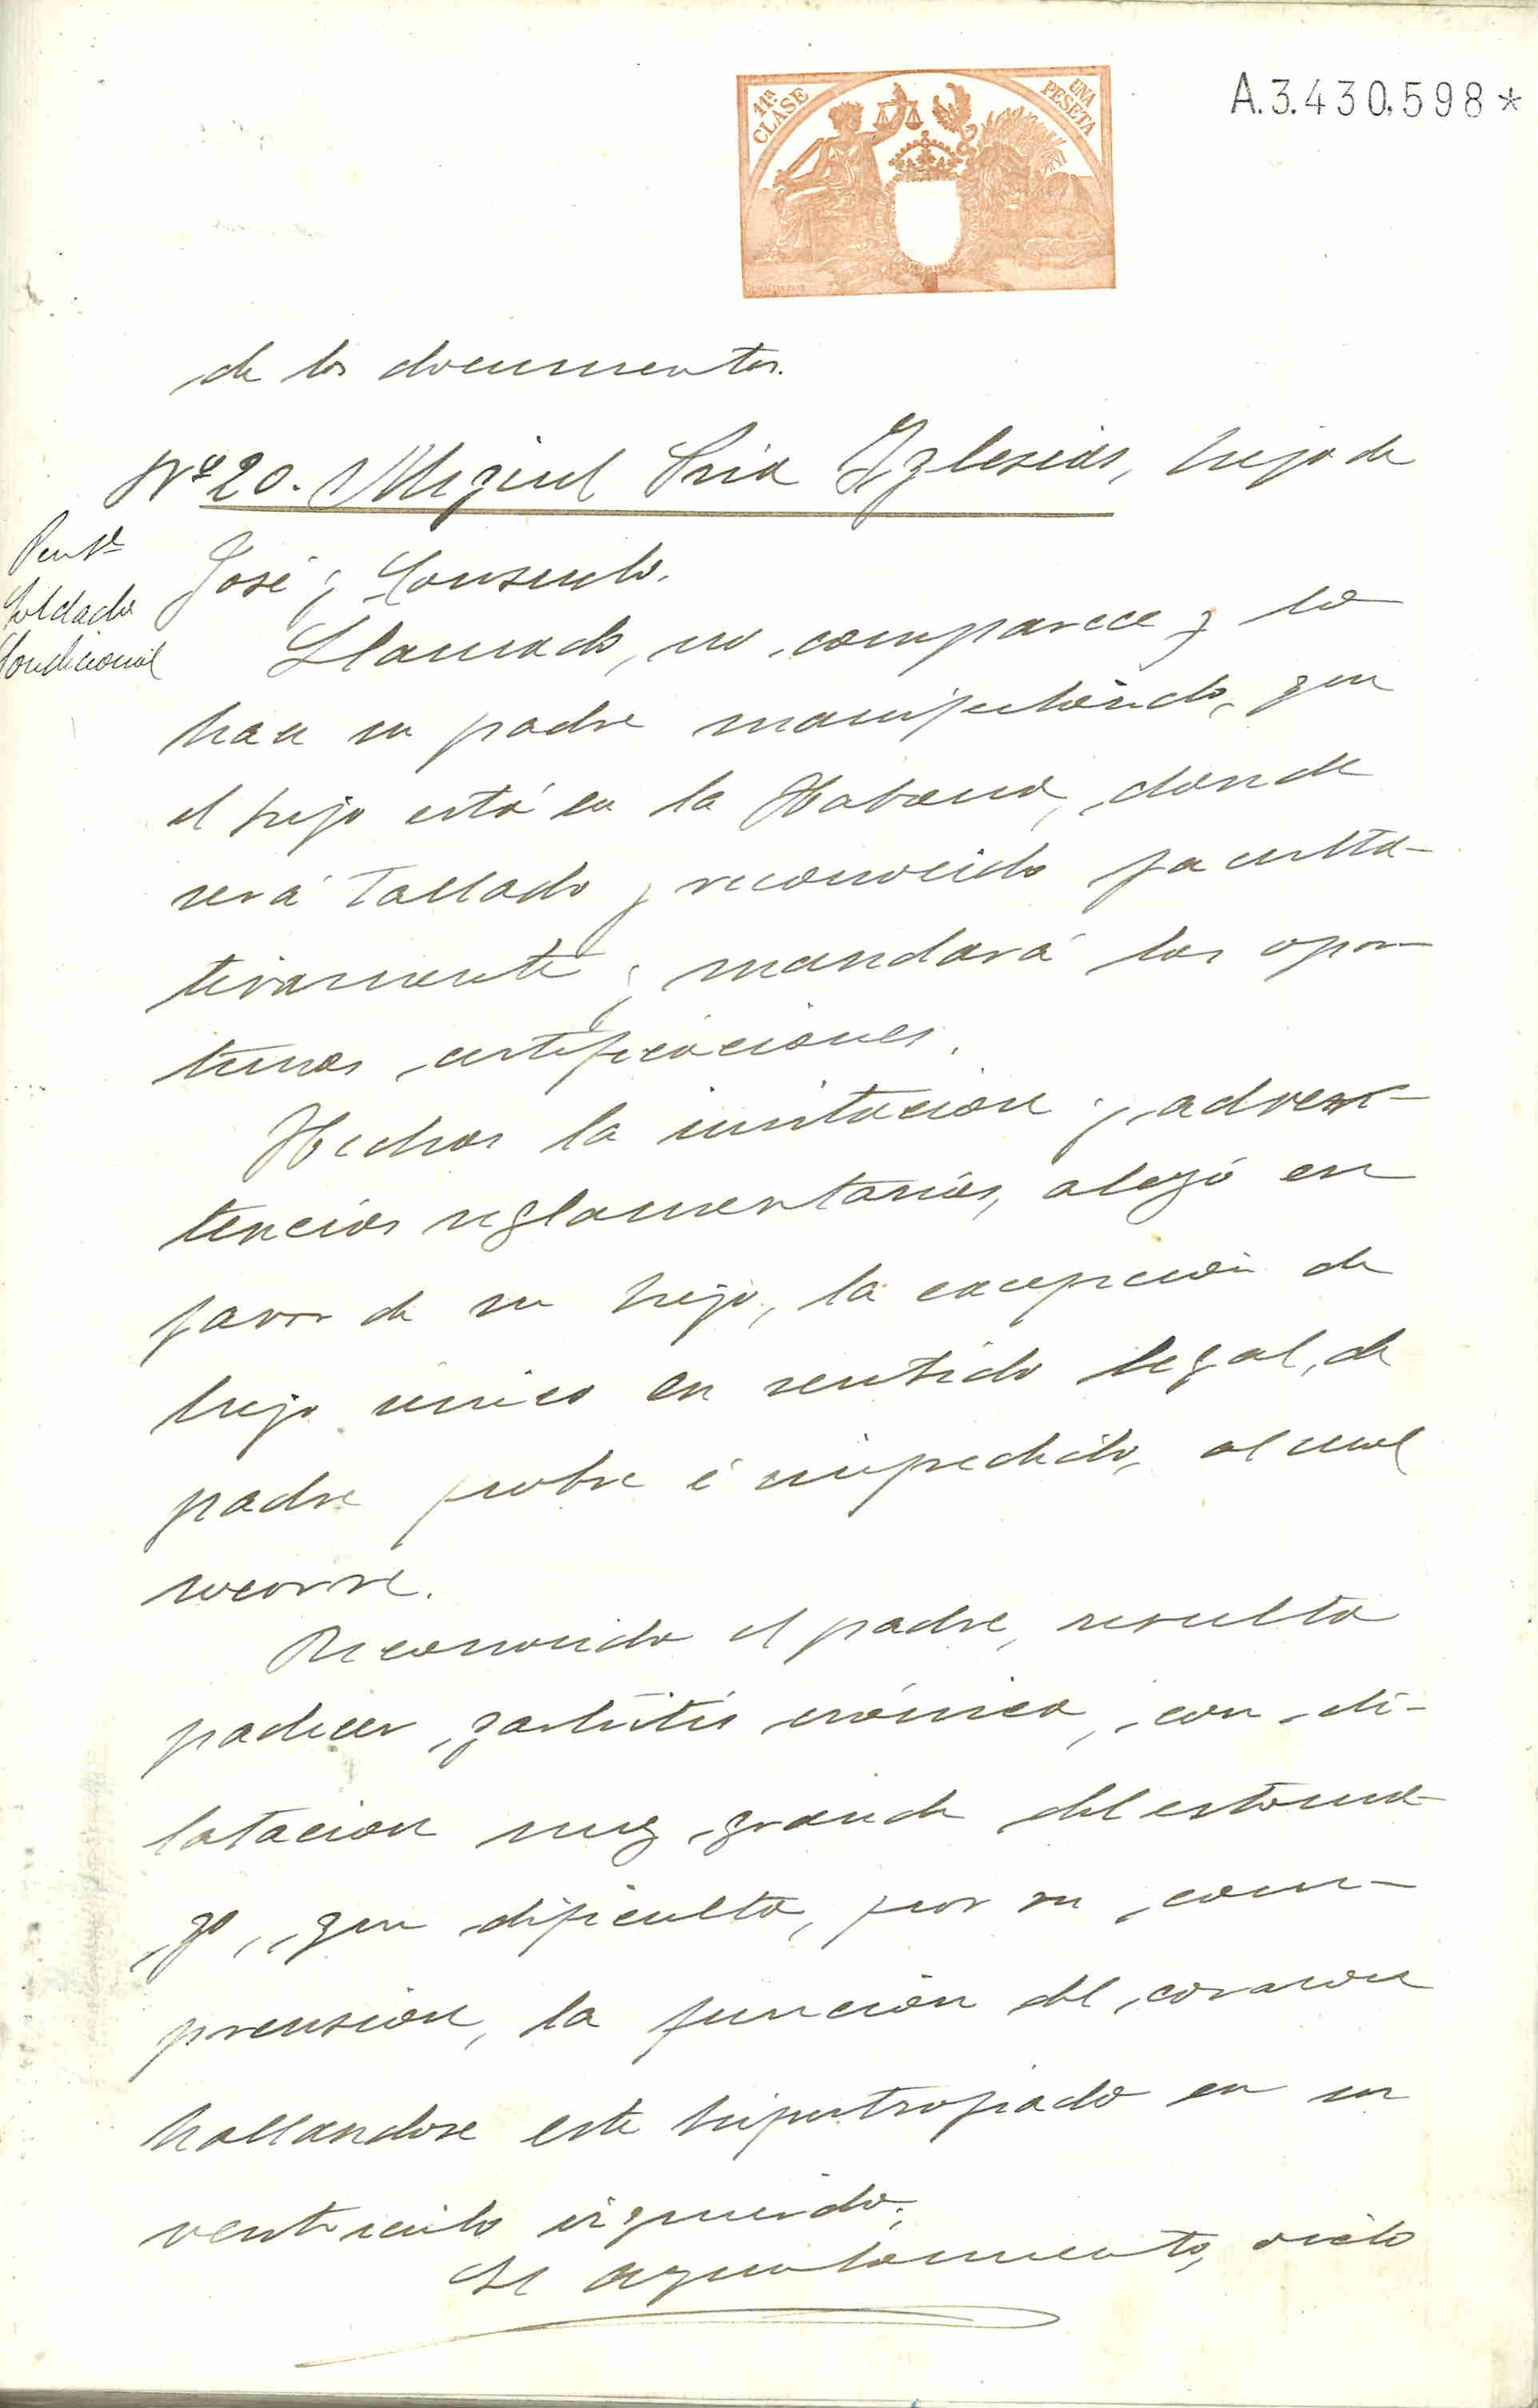 11ª CLASE
UNA PESETA
A.3.430.598*
de los documentos.
Nº 20. Miguel Iglesias, hijo de
Soldado
Condicional
José y Consuelo.
Llamado, no comparece y lo
hace su padre manifestando, que
el hijo está en la Habana, donde
será tallado y reconocido faculta-
tivamente y mandará las opor-
tunas certificaciones.
Hechas la invitación y adver-
tencias reglamentarias, alegó en
favor de su hijo, la excepción de
hijo único en sentido legal, de
padre pobre é impedido, al cual
socorre.
Reconocido el padre, resulta
padecer gastritis crónica, con di-
latacion muy grande del estoma-
go, que dificulta, por su com-
prension, la función del corazon
hallandose este hipertrofiado en su
ventriculo izquierdo.
El Ayuntamiento, visto